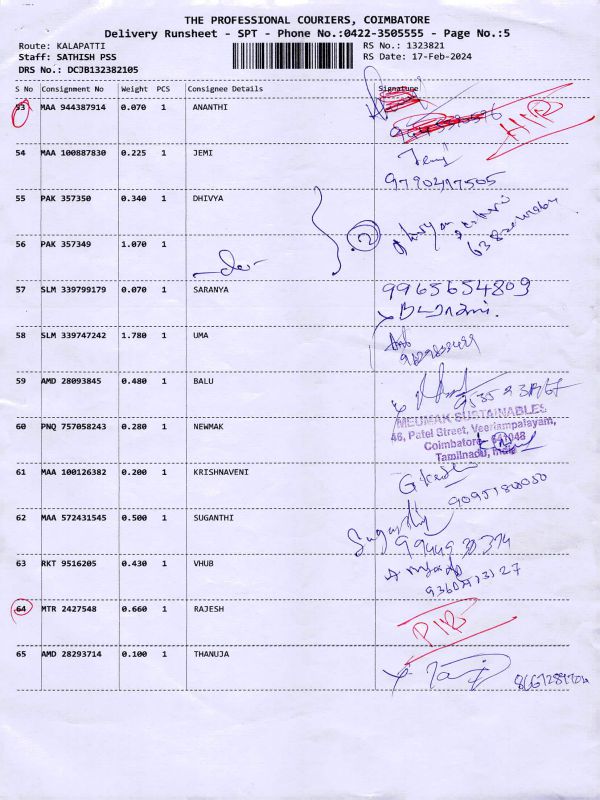 THE PROFESSIONAL COURIERS, COIMBATORE
Delivery Runsheet - SPT - Phone No.:0422-3505555 - Page No.:5
Route: KALAPATTI
RS No.: 1323821
Staff: SATHISH PSS
RS Date: 17-Feb-2024
DRS No.: DCJB132382105
S No Consignment No Weight PCS Consignee Details Signature
53 MAA 944387914 0.070 1 ANANTHI
54 MAA 100887830 0.225 1 JEMI
9790417505
55 PAK 357350 0.340 1 DHIVYA
56 PAK 357349 1.070 1 -do- 2
57 SLM 339799179 0.070 1 SARANYA 9965654809
58 SLM 339747242 1.780 1 UMA
59 AMD 28093845 0.480 1 BALU
60 PNQ 757058243 0.280 1 NEWMAK MEUMAK SUSTAINABLES
46, Patel Street, Veeriampalayam,
Coimbatore - 641048
Tamilnadu, India
61 MAA 100126382 0.200 1 KRISHNAVENI
62 MAA 572431545 0.500 1 SUGANTHI Suganthi
63 RKT 9516205 0.430 1 VHUB
64 MTR 2427548 0.660 1 RAJESH
65 AMD 28293714 0.100 1 THANUJA